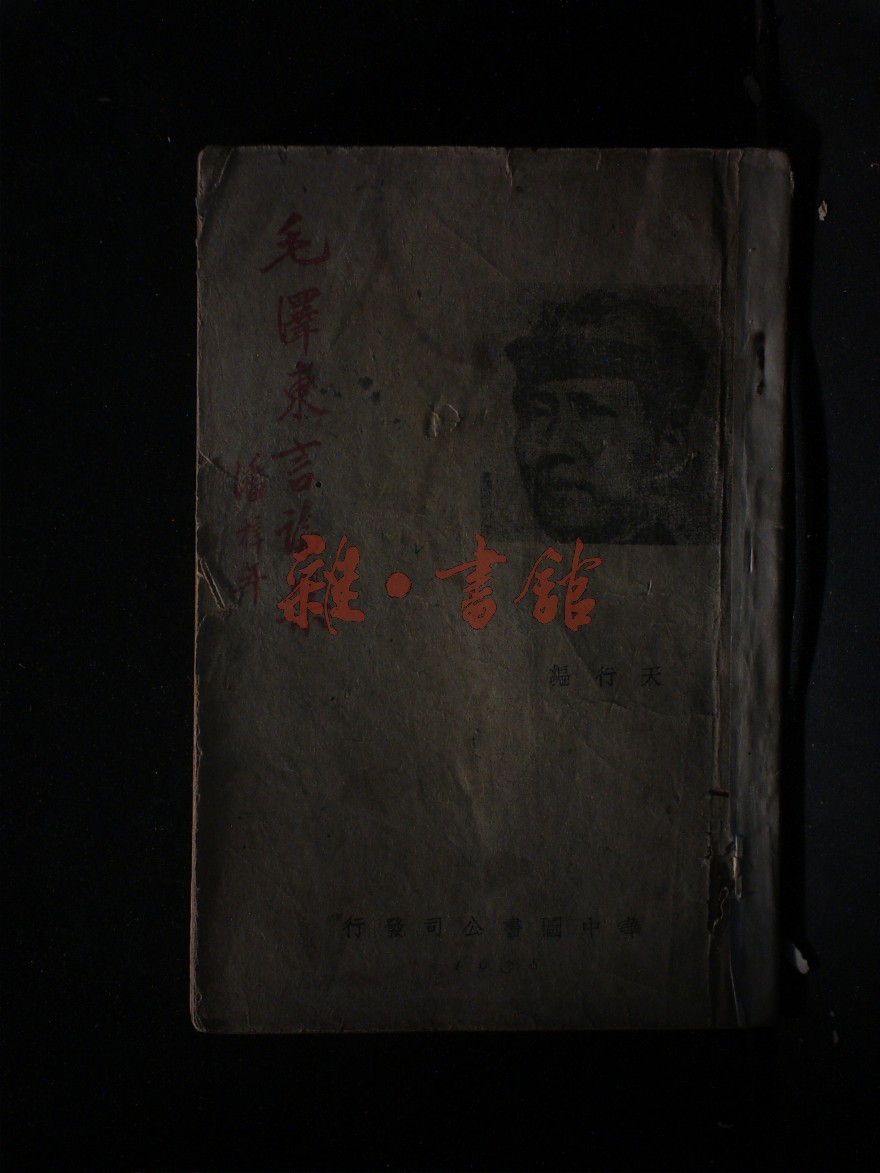 毛澤東言論
潘梓年
雜·書館
天行編
華中圖書公司發行
1938